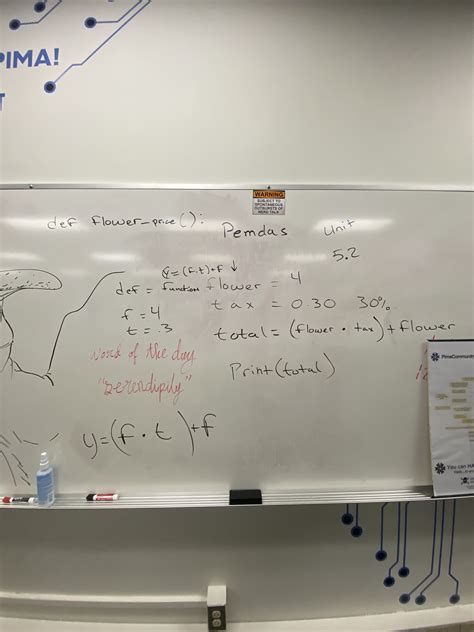 PIMA!
WARNING
SUBJECT TO
SPONTANEOUS
OUTBURSTS OF
NERD TALK
def flower_price():
Pemdas
Unit
5.2
y=(f·t)+f ↓
def = function
flower = 4
f=4
tax = 0.30 30%
t=.3
total=(flower · tax)+flower
word of the day
"serendipity"
Print(total)
y=(f·t)+f
PimaCommunity
You can